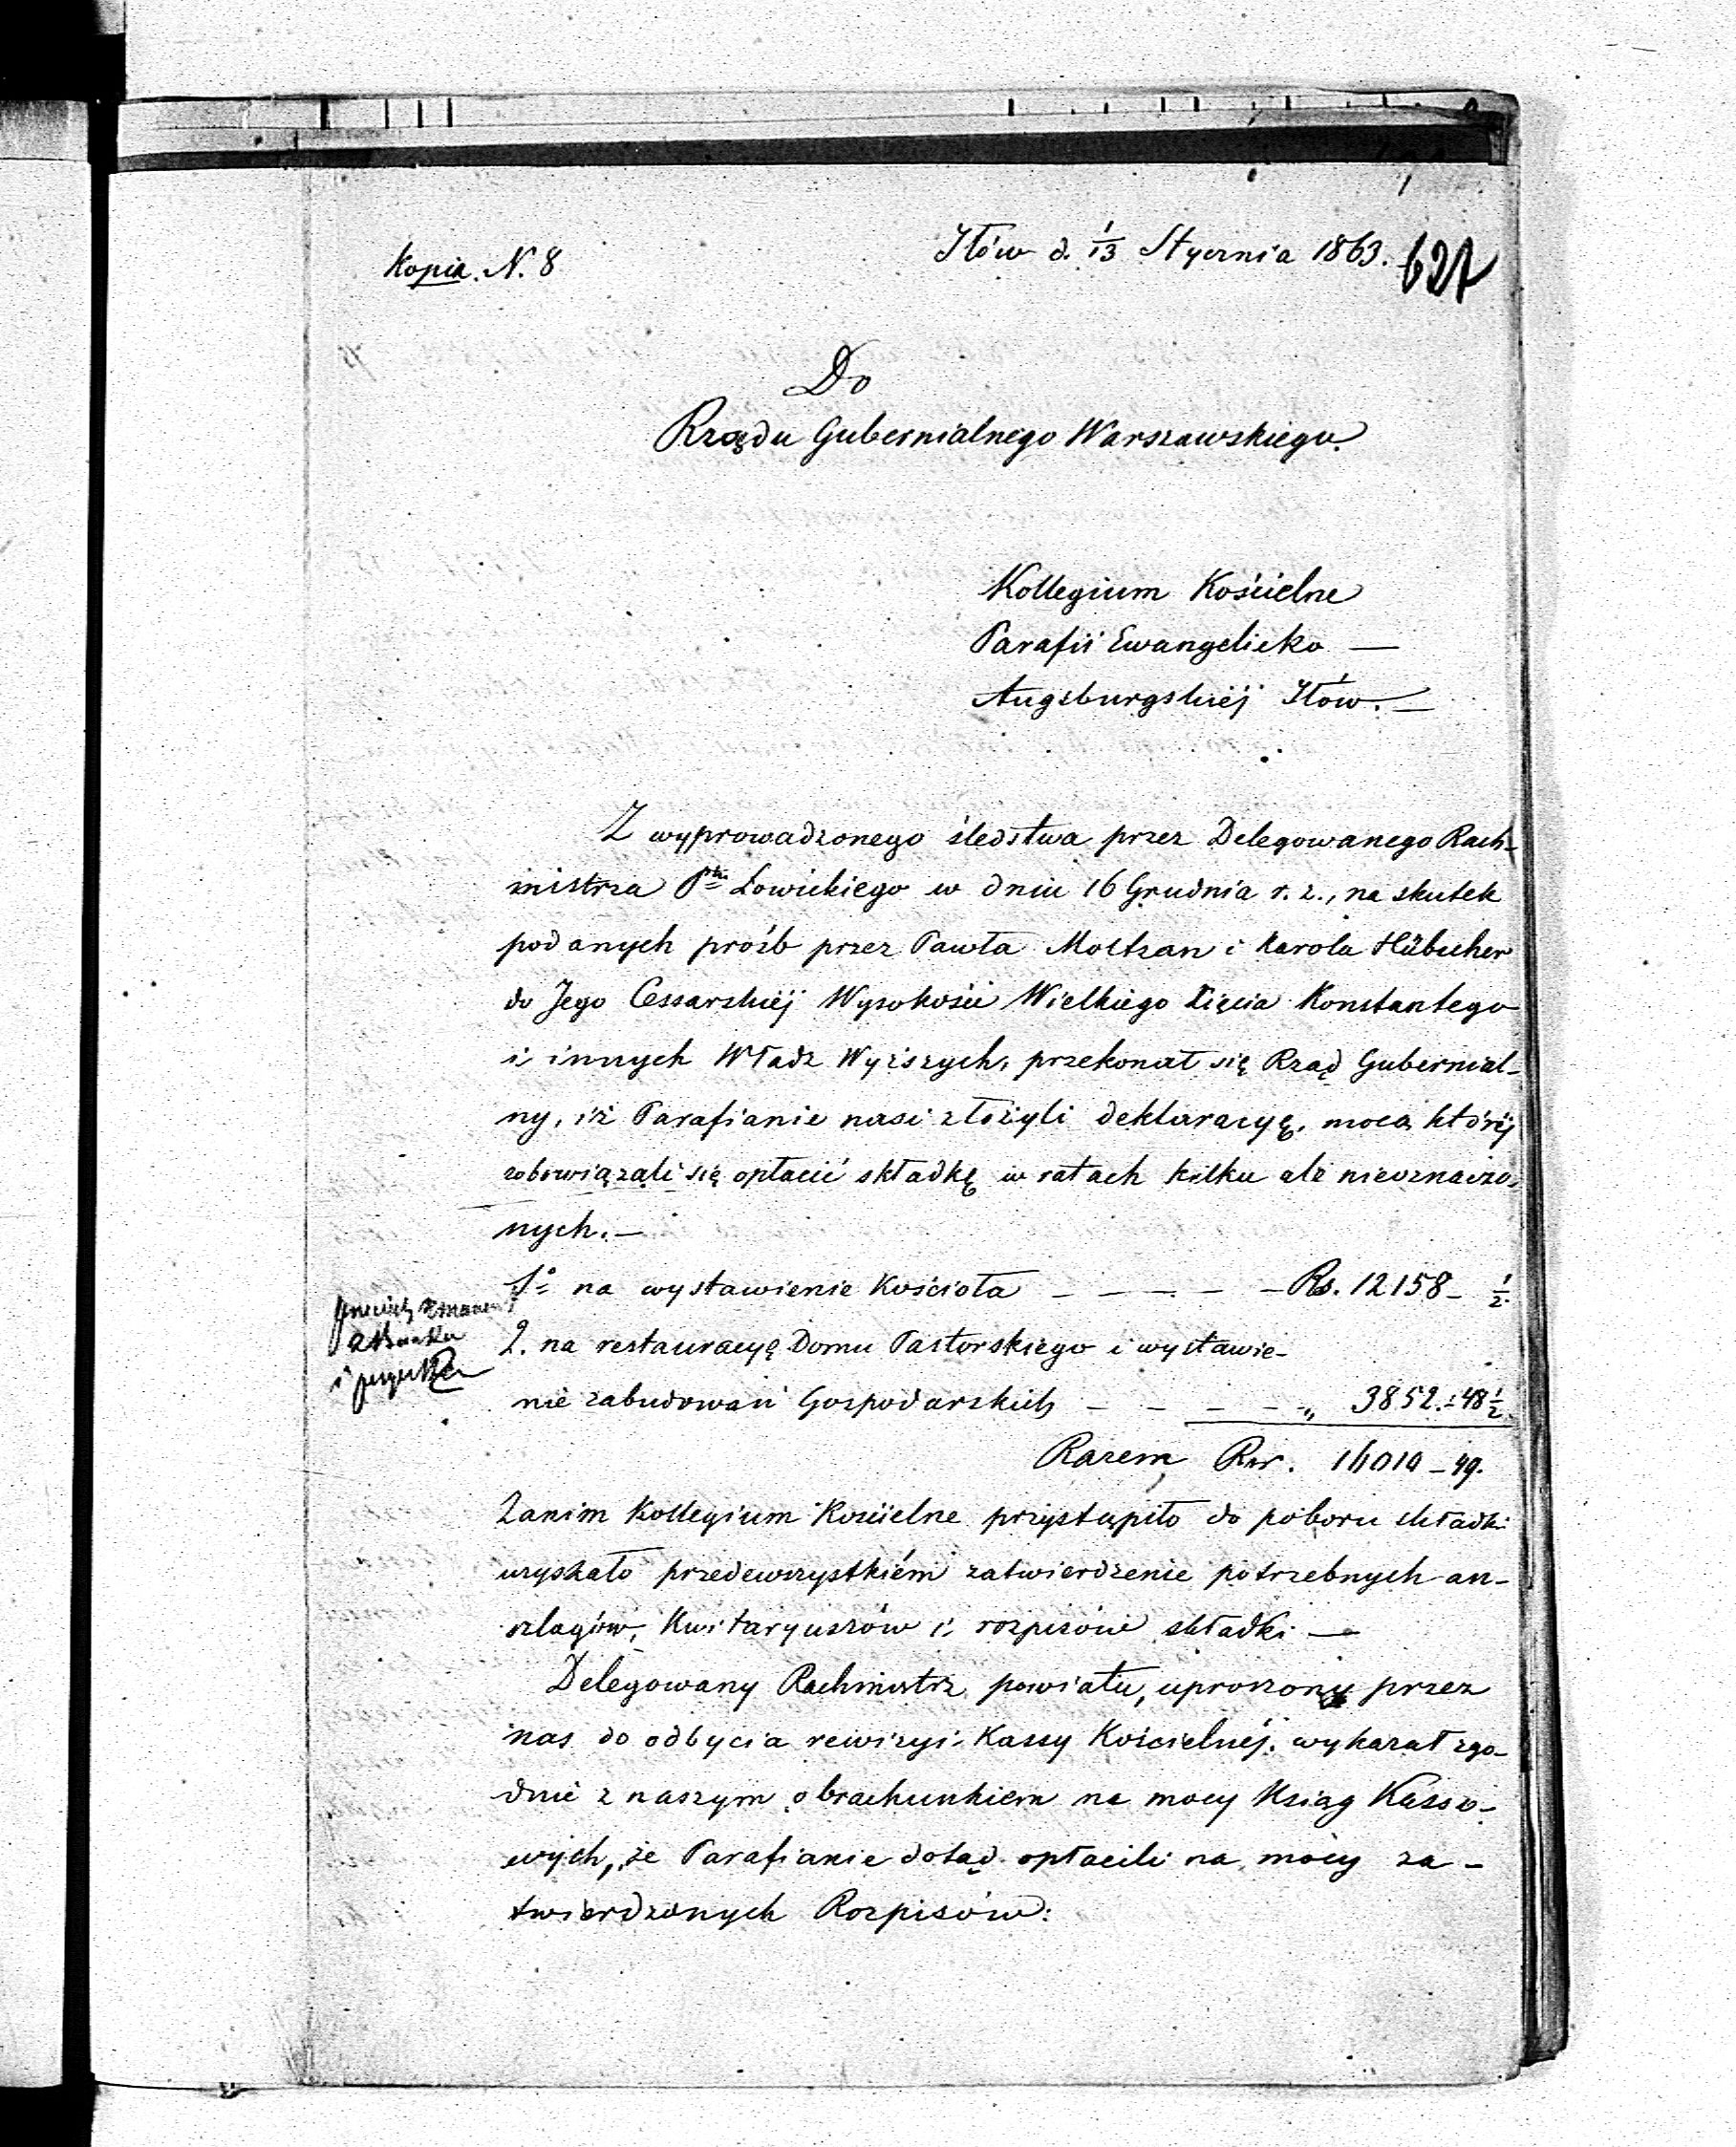 Kopia. N. 8
Iłów d. 1/13 Stycznia 1863.
627
Do
Rządu Gubernialnego Warszawskiego.
Kollegium Kościelne
Parafii Ewangelicko —
Augsburgskiéj Iłów. —
Z wyprowadzonego śledztwa przez Delegowanego Rach-
mistrza Ptu Łowickiego w dniu 16 Grudnia r. z., na skutek
podanych prośb przez Pawła Moltzan i Karola Hübscher
do Jego Cessarskiéj Wysokości Wielkiego Xięcia Konstantego
i innych Władz Wyższych, przekonał się Rząd Gubernial-
ny, iż Parafianie nasi złożyli deklaracyę, mocą któréj
zobowiązali się opłacić składkę w ratach kilku ale nieoznaczo-
nych. —
1o na wystawienie Kościoła — — — — — Rs. 12158 — 1/2.
2. na restauracyę Domu Pastorskiego i wystawie-
nie zabudowań Gospodarskich — — — — „ 3852. = 48 1/2
Razem Rsr. 16010 — 49.
Zanim Kollegium Kościelne przystąpiło do poboru składki
uzyskało przedewszystkiém zatwierdzenie potrzebnych an-
szlagów, Kwitaryuszów i rozpisów składki —
Delegowany Rachmistrz powiatu, uproszony przez
nas do odbycia rewizyi Kassy Kościelnéj. wykazał zgo-
dnie z naszym obrachunkiem na mocy Ksiąg Kasso-
wych, że Parafianie dotąd opłacili na mocy za-
twierdzonych Rozpisów: